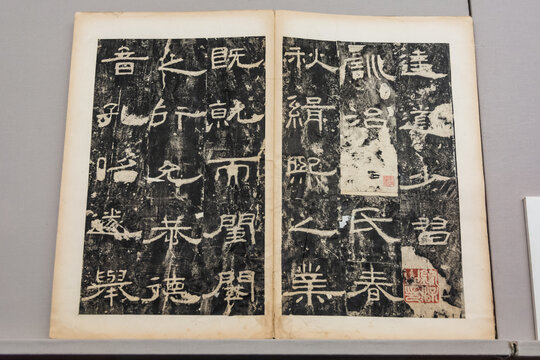 達道少習
訓治氏春
秋緝熙之業
既就而閨閾
之行允恭德
音孔昭遂舉